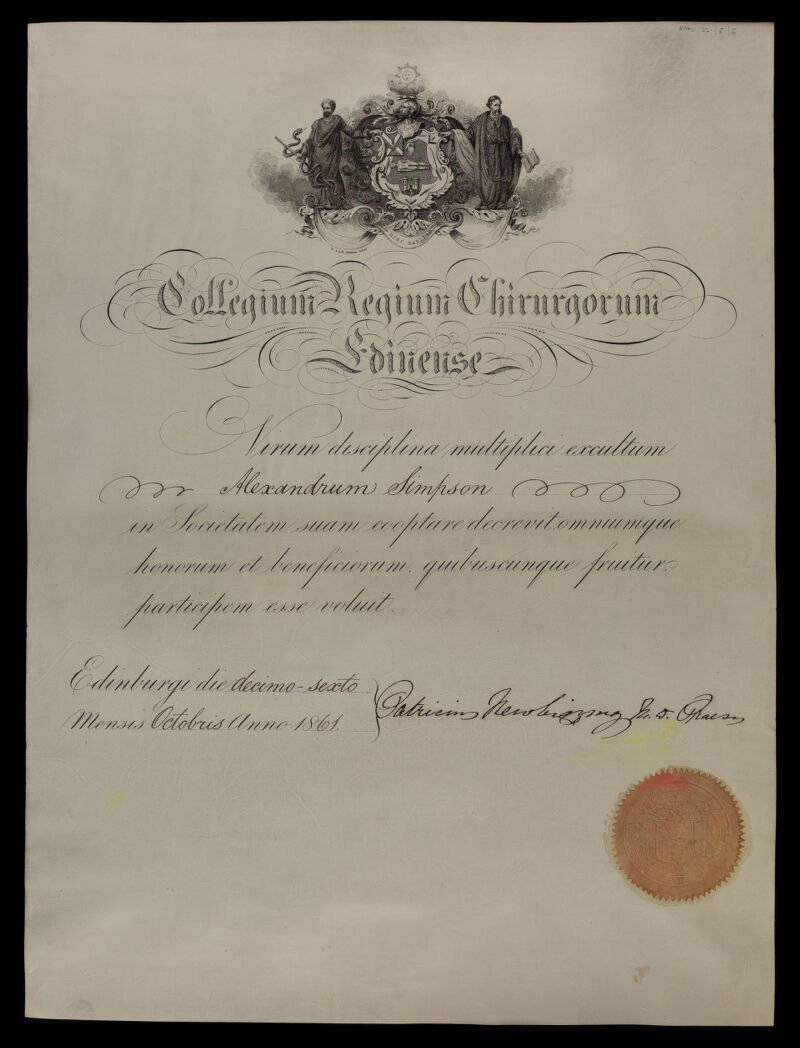 Collegium Regium Chirurgorum
Edinense
Virum disciplina multiplici excultum
Alexandrum Simpson
in Societatem suam cooptare decrevit, omniumque
honorum et beneficiorum, quibuscunque fruitur,
participem esse voluit.
Edinburgi die decimo-sexto
Mensis Octobris Anno 1861.
Patricius Newbigging M.D. Praeses